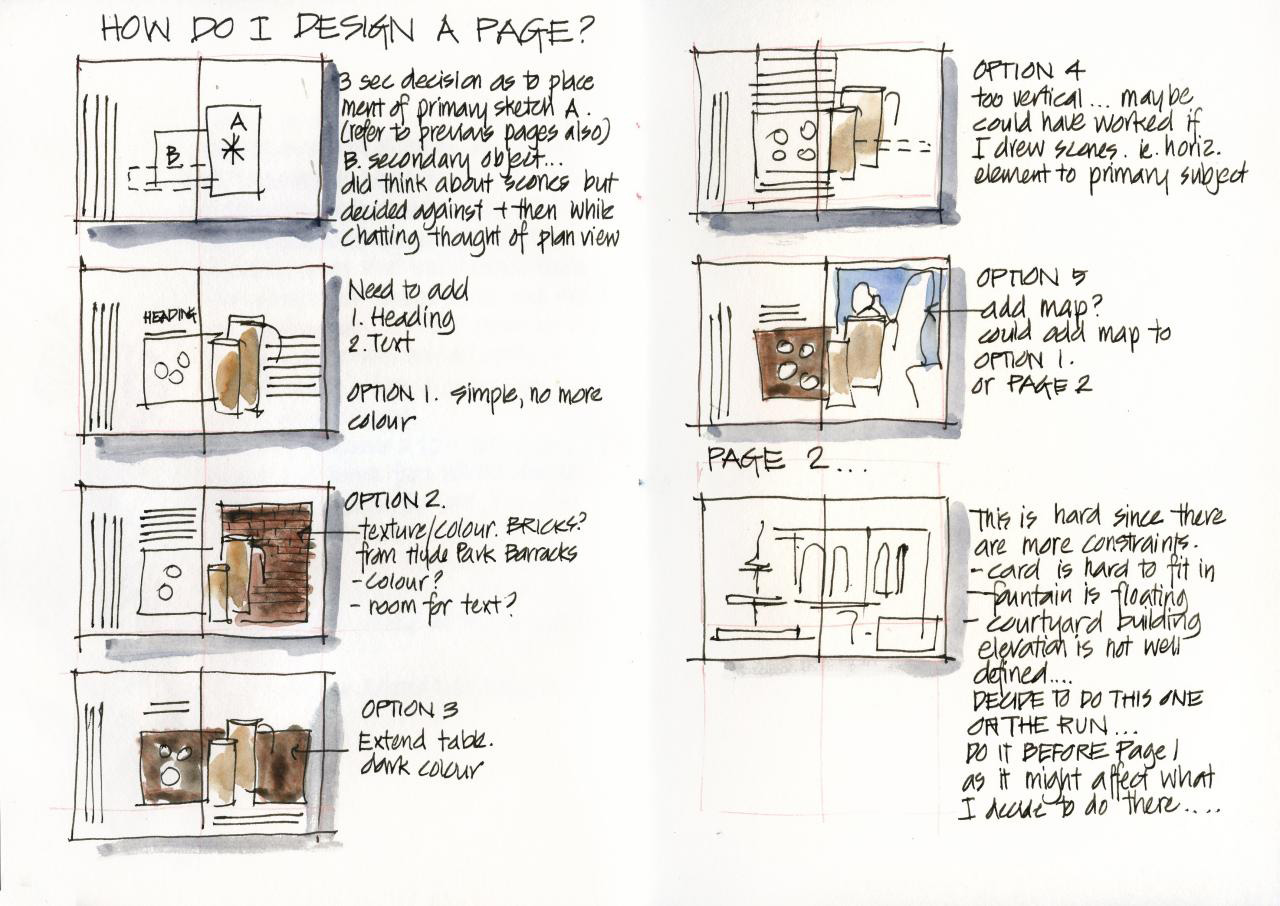 HOW DO I DESIGN A PAGE?
3 sec decision as to place
ment of primary sketch A.
(refer to previous pages also)
B. secondary object...
did think about scones but
decided against + then while
chatting thought of plan view
A
B
Need to add
1. Heading
2. Text
HEADING
OPTION 1. Simple, no more
colour
OPTION 2.
texture/colour. BRICKS?
from Hyde Park Barracks
- colour?
- room for text?
OPTION 3
Extend table.
dark colour
OPTION 4
too vertical... maybe
could have worked if
I drew scones. ie. horiz.
element to primary subject
OPTION 5
add map?
could add map to
OPTION 1.
or PAGE 2
PAGE 2...
This is hard since there
are more constraints.
- card is hard to fit in
- fountain is floating
- courtyard building
elevation is not well
defined....
DECIDE TO DO THIS ONE
ON THE RUN...
DO IT BEFORE Page 1
as it might affect what
I decide to do there....
?